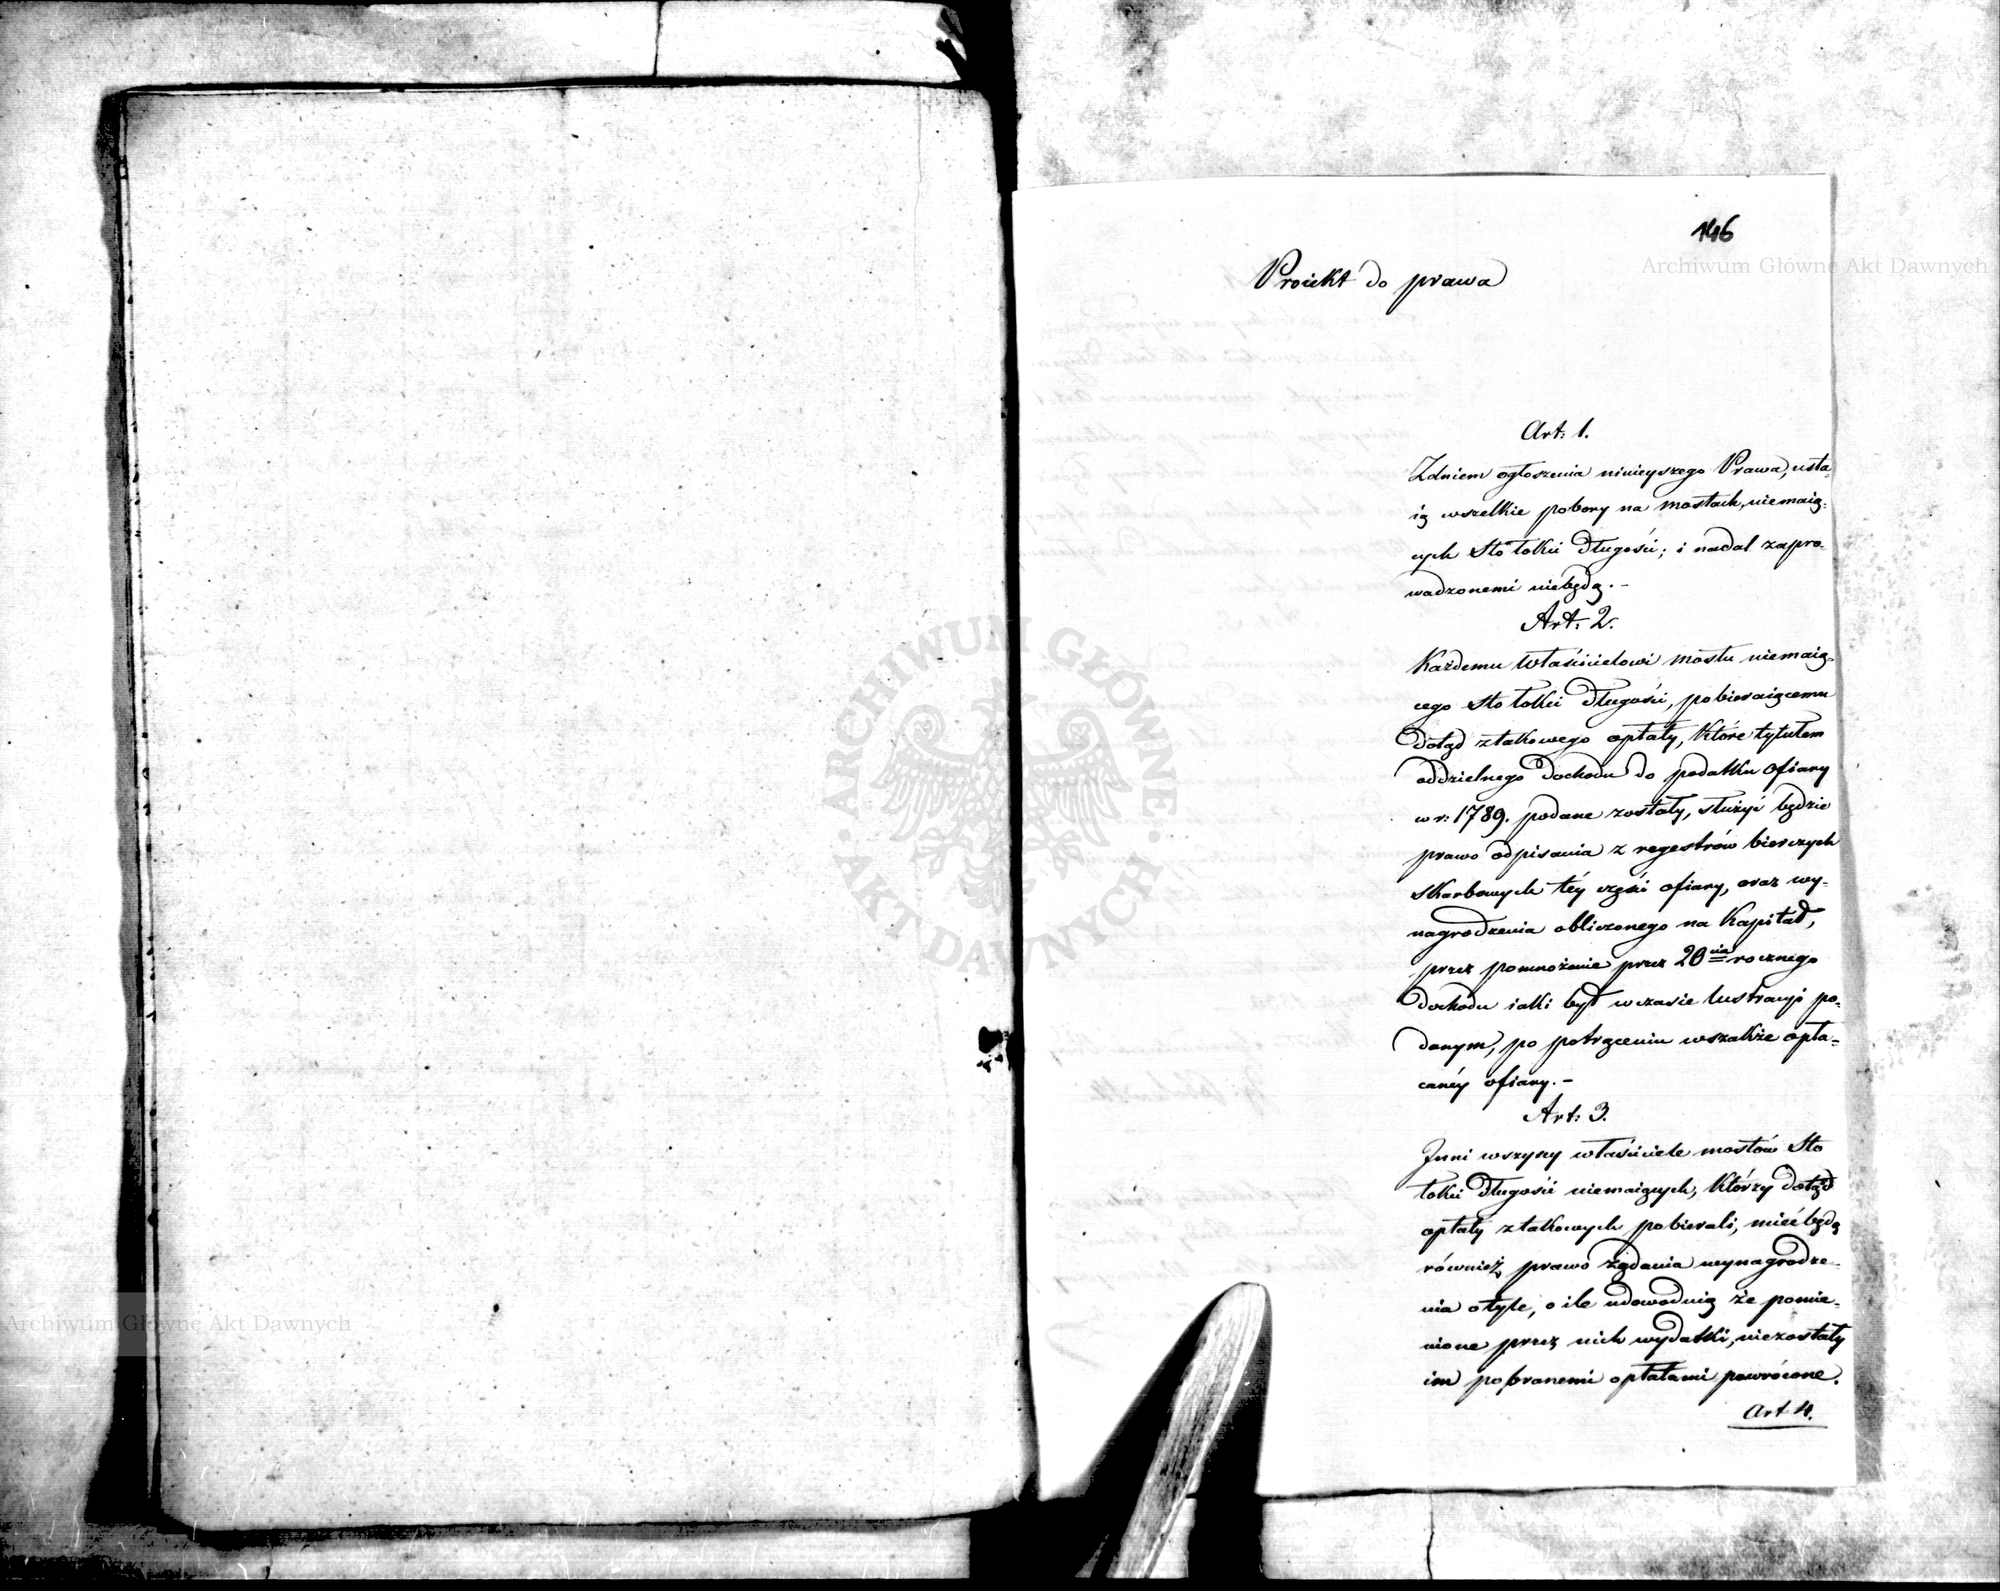 146
Archiwum Główne Akt Dawnych
Proiekt do prawa
Art: 1.
Zdniem ogłoszenia ninieyszego Prawa, usta-
ią wszelkie pobory na mostach, niemaią-
cych Sto łokci długości; i nadal zapro-
wadzonemi niebędą. -
Art: 2.
Każdemu Właścicielowi mostu niemaią-
cego Sto łokci długości, pobieraiącemu
dotąd ztakowego opłaty, które tytułem
oddzielnego dochodu do podatku ofiary
w r: 1789. podane zostały, służyć będzie
prawo odpisania z regestrów bierczych
Skarbowych téy części ofiary, oraz wy-
nagrodzenia obliczonego na Kapitał,
przez pomnożenie przez 20nia rocznego
dochodu iaki był wczasie lustracyi po-
danym, po potrąceniu wszakże opła-
canéy ofiary. -
Art: 3.
Inni wszyscy właściciele mostów Sto
łokci długości niemaiących, którzy dotąd
opłaty ztakowych pobierali, mieć będą
również prawo żądania wynagrodze-
nia otyle, o ile udowodnią że pomie-
nione przez nich wydatki, niezostały
im pobranemi opłatami powrócone.
Art 4.
ARCHIWUM GŁÓWNE
AKT DAWNYCH
Archiwum Główne Akt Dawnych